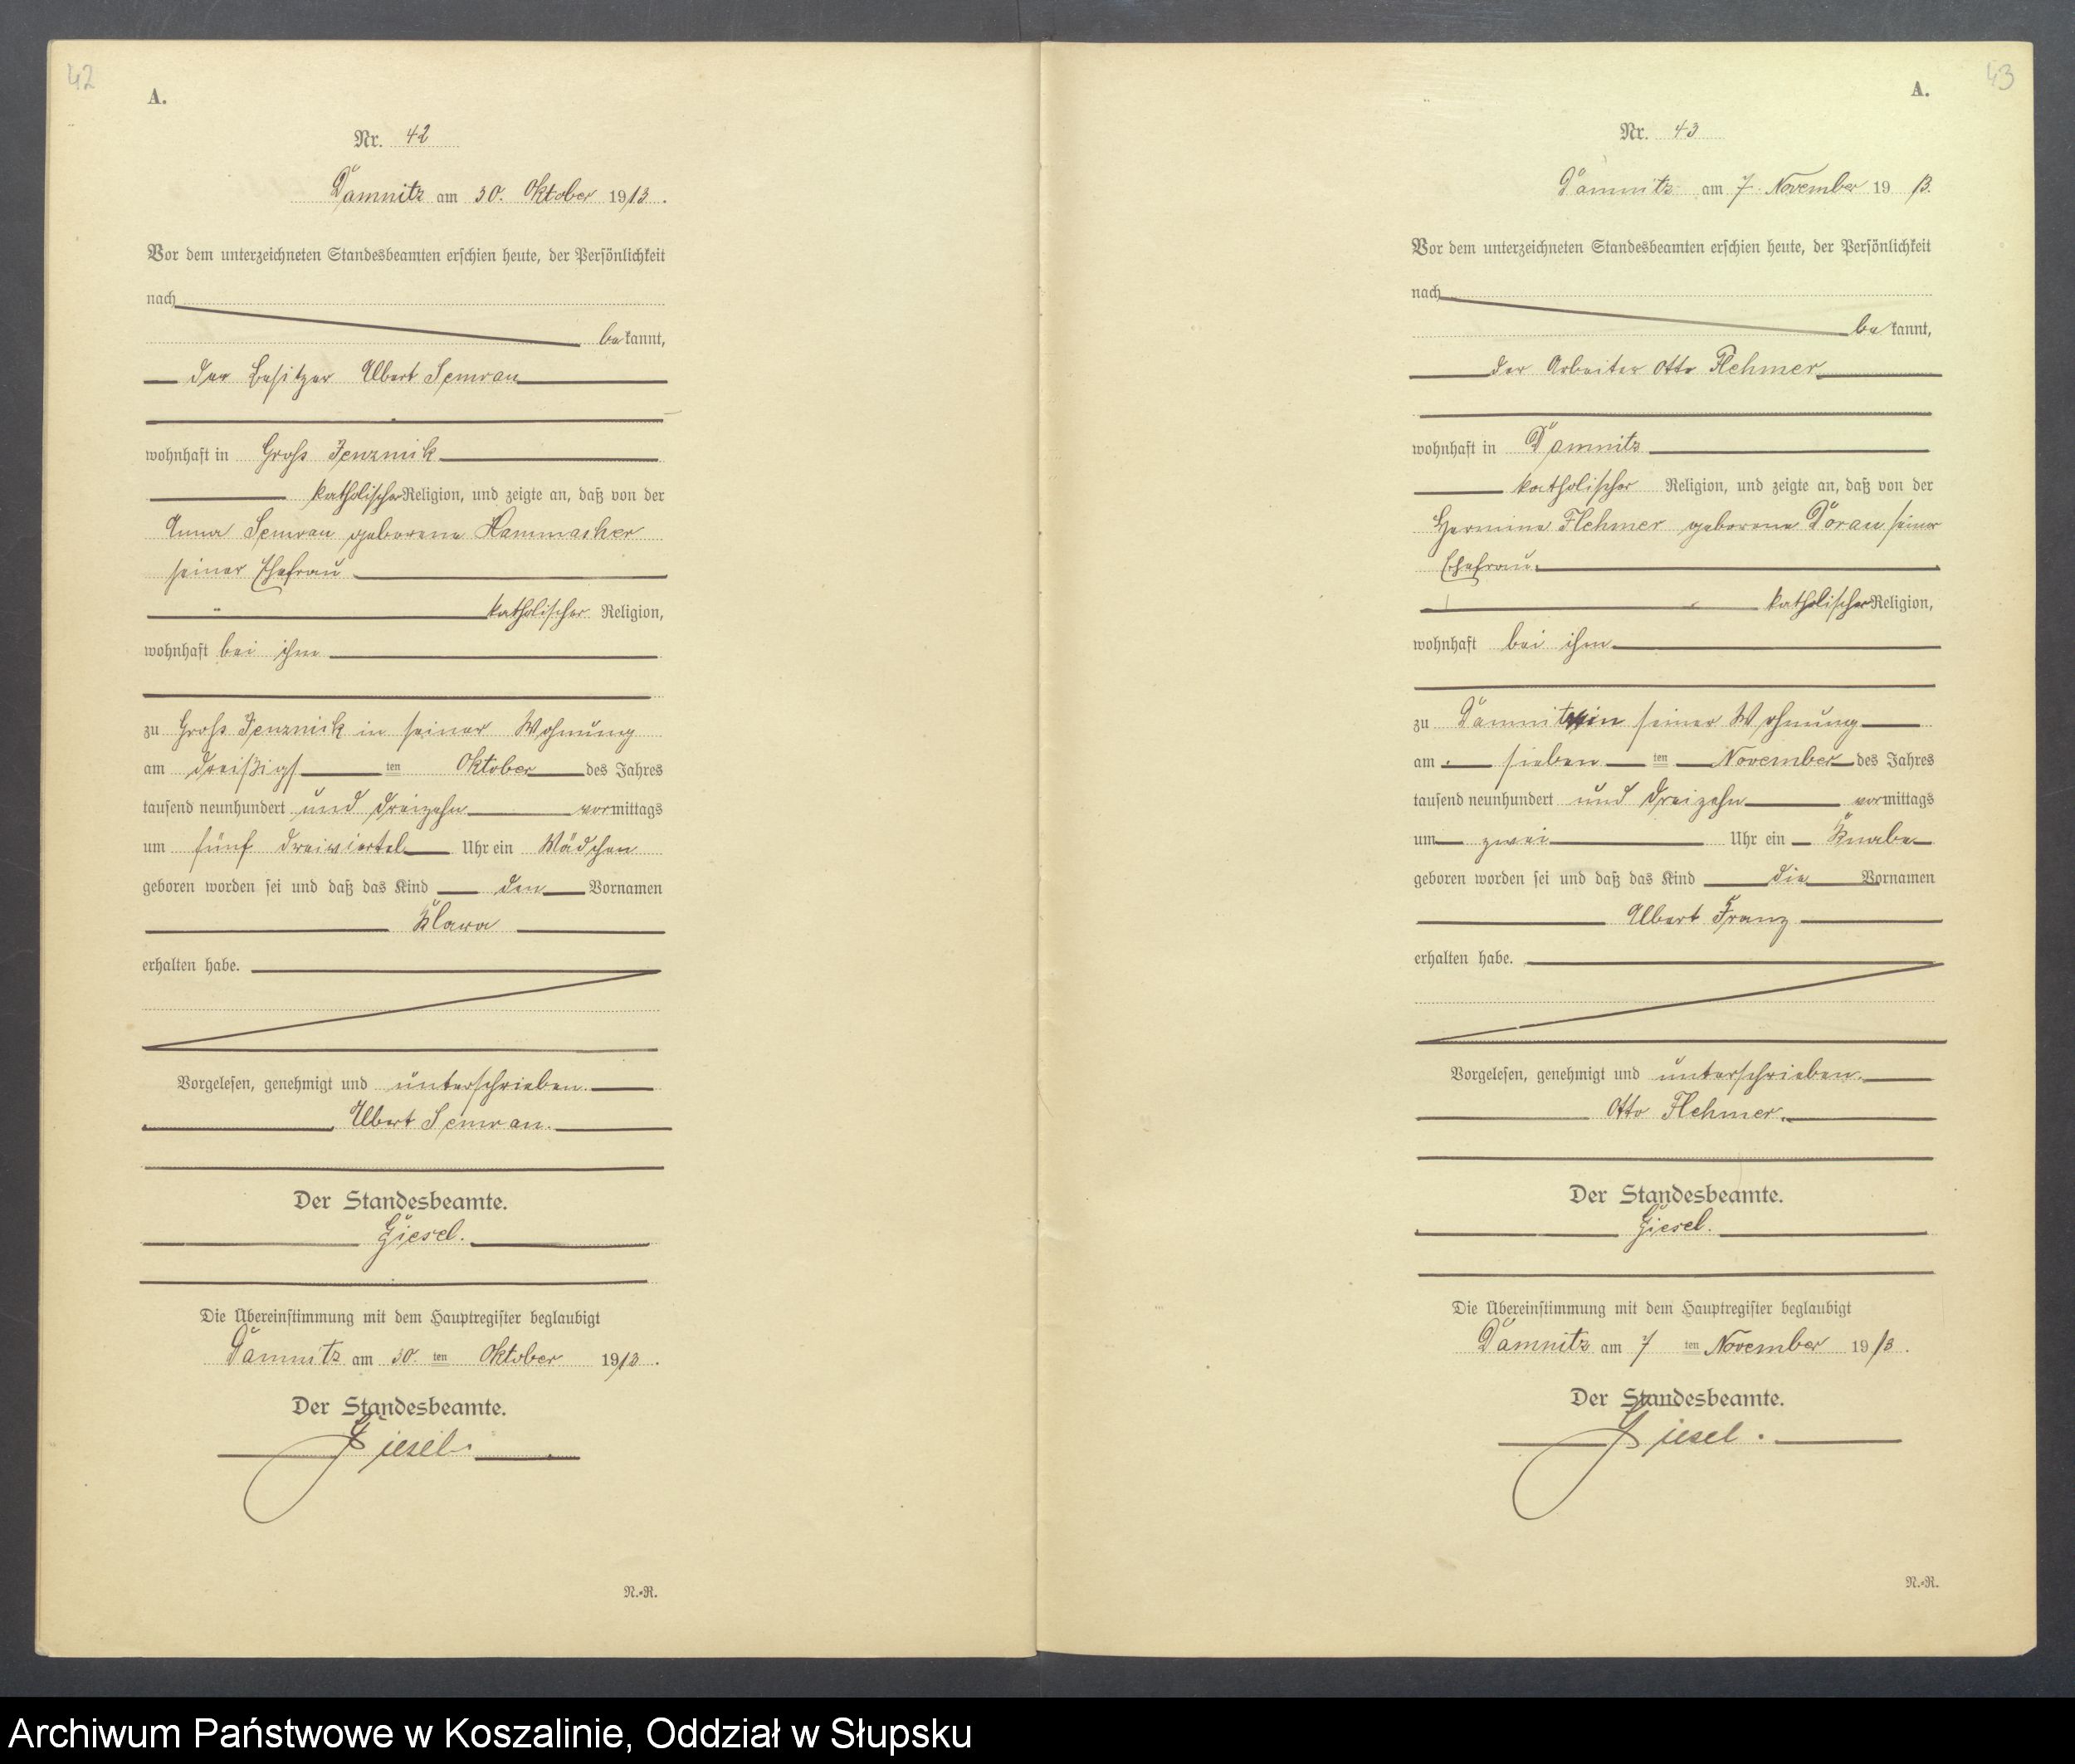 42
A.
Nr. 42
Damnitz am 30. Oktober 1913.
Vor dem unterzeichneten Standesbeamten erschien heute, der Persönlichkeit
nach
bekannt,
der Besitzer Albert Semrau
wohnhaft in Groß Jenznik
katholischer Religion, und zeigte an, daß von der
Anna Semrau geborene Hammacher
seiner Ehefrau
katholischer Religion,
wohnhaft bei ihm
zu Groß Jenznick in seiner Wohnung
am dreißigsten Oktober des Jahres
tausend neunhundert und dreizehn vormittags
um fünf dreiviertel Uhr ein Mädchen
geboren worden sei und daß das Kind den Vornamen
Klara
erhalten habe.
Vorgelesen, genehmigt und unterschrieben.
Albert Semrau.
Der Standesbeamte.
Giesel.
Die Übereinstimmung mit dem Hauptregister beglaubigt
Damnitz am 30. ten Oktober 1913.
Der Standesbeamte.
Giesel.
N.-R.
43
A.
Nr. 43
Damnitz am 7. November 1913.
Vor dem unterzeichneten Standesbeamten erschien heute, der Persönlichkeit
nach
bekannt,
der Arbeiter Otto Flehmer
wohnhaft in Damnitz
katholischer Religion, und zeigte an, daß von der
Hermine Flehmer geborene Dorau seiner
Ehefrau.
katholischer Religion,
wohnhaft bei ihm
zu Damnitz in seiner Wohnung
am sieben ten November des Jahres
tausend neunhundert und dreizehn vormittags
um zwei Uhr ein Knabe
geboren worden sei und daß das Kind die Vornamen
Albert Franz
erhalten habe.
Vorgelesen, genehmigt und unterschrieben.
Otto Flehmer.
Der Standesbeamte.
Giesel.
Die Übereinstimmung mit dem Hauptregister beglaubigt
Damnitz am 7 ten November 1913.
Der Standesbeamte.
Giesel.
N.-R.
Archiwum Państwowe w Koszalinie, Oddział w Słupsku